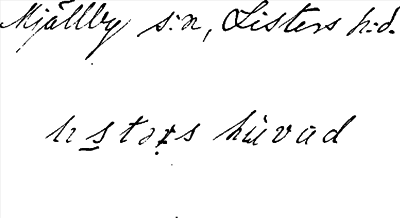 Mjällby s:n, Listers h:d.
hstəɽs hüvad